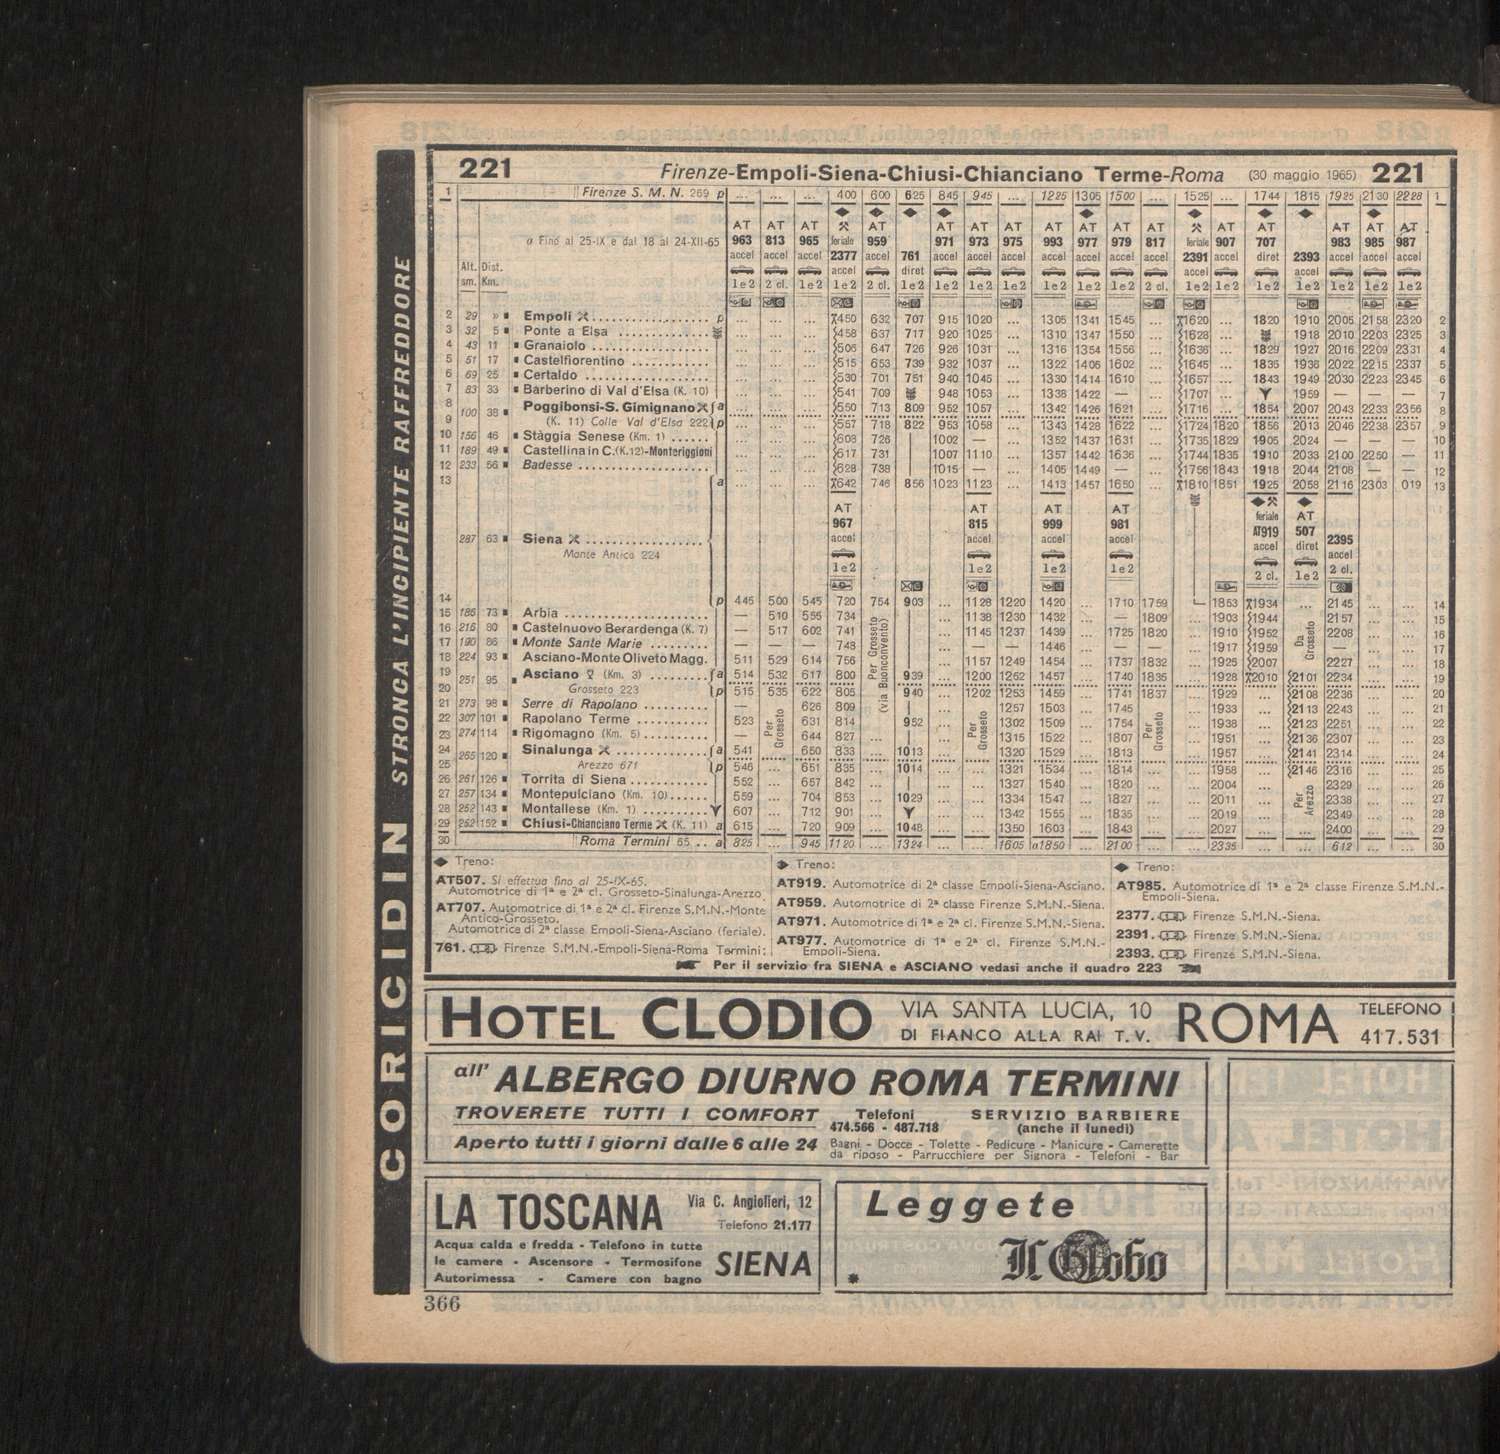 221 Firenze-Empoli-Siena-Chiusi-Chianciano Terme-Roma (30 maggio 1965) 221
1 Firenze S. M. N. 269 p ... ... ... 400 600 625 845 945 ... 1225 1305 1500 ... 1525 ... 1744 1815 1925 2130 2228 1
α Fino al 25-IX e dal 18 al 24-XII-65
Alt. sm. Dist. Km.
AT 963 accel 1e2
AT 813 accel 2 cl.
AT 965 accel 1e2
AT feriale 2377 accel 1e2
AT 959 accel 2 cl.
761 diret 1e2
AT 971 accel 1e2
AT 973 accel 1e2
AT 975 accel 1e2
AT 993 accel 1e2
AT 977 accel 1e2
AT 979 accel 1e2
AT 817 accel 2 cl.
feriale 2391 accel 1e2
AT 907 accel 1e2
AT 707 diret 1e2
2393 accel 1e2
AT 983 accel 1e2
AT 985 accel 1e2
AT 987 accel 1e2
2 29 » Empoli p ... ... ... 450 632 707 915 1020 ... 1305 1341 1545 ... 1620 ... 1820 1910 2005 2158 2320 2
3 32 5 Ponte a Elsa ... ... ... 458 637 717 920 1025 ... 1310 1347 1550 ... 1628 ... 1918 2010 2203 2325 3
4 43 11 Granaiolo ... ... ... 506 647 726 926 1031 ... 1316 1354 1556 ... 1636 ... 1829 1927 2016 2209 2331 4
5 51 17 Castelfiorentino ... ... ... 515 653 739 932 1037 ... 1322 1406 1602 ... 1645 ... 1835 1936 2022 2215 2337 5
6 69 25 Certaldo ... ... ... 530 701 751 940 1045 ... 1330 1414 1610 ... 1657 ... 1843 1949 2030 2223 2345 6
7 83 33 Barberino di Val d'Elsa (K. 10) ... ... ... 541 709 948 1053 ... 1338 1422 — ... 1707 ... 1959 — — — 7
8 100 38 Poggibonsi-S. Gimignano a ... ... ... 550 713 809 952 1057 ... 1342 1426 1621 ... 1716 ... 1854 2007 2043 2233 2356 8
9 (K. 11) Colle Val d'Elsa 222 p ... ... ... 557 718 822 953 1058 ... 1343 1428 1622 ... 1724 1820 1856 2013 2046 2238 2357 9
10 156 46 Stàggia Senese (Km. 1) ... ... ... 608 726 1002 — ... 1352 1437 1631 ... 1735 1829 1905 2024 — — — 10
11 189 49 Castellina in C.(K.12)-Monteriggioni ... ... ... 617 731 1007 1110 ... 1357 1442 1636 ... 1744 1835 1910 2033 2100 2250 — 11
12 233 56 Badesse ... ... ... 628 738 1015 — ... 1405 1449 — ... 1756 1843 1918 2044 2108 — — 12
13 a ... ... ... 642 746 856 1023 1123 ... 1413 1457 1650 ... 1810 1851 1925 2058 2116 2303 019 13
287 63 Siena
Monte Antico 224
AT 967 accel 1e2
AT 815 accel 1e2
AT 999 accel 1e2
AT 981 accel 1e2
feriale AT919 accel 2 cl.
AT 507 diret 1e2
2395 accel 2 cl.
14 p 445 500 545 720 754 903 ... 1128 1220 1420 ... 1710 1759 1853 1934 ... 2145 ... ... 14
15 186 73 Arbia — 510 555 734 ... 1138 1230 1432 ... — 1809 1903 1944 2157 ... ... 15
16 216 80 Castelnuovo Berardenga (K. 7) — 517 602 741 ... 1145 1237 1439 ... 1725 1820 ... 1910 1952 2208 ... ... 16
17 190 86 Monte Sante Marie — — — 748 ... — — 1446 ... — — ... 1917 1959 — ... ... 17
18 224 93 Asciano-Monte Oliveto Magg. 511 529 614 756 ... 1157 1249 1454 ... 1737 1832 ... 1925 2007 2227 ... ... 18
19 251 95 Asciano (Km. 3) a 514 532 617 800 939 ... 1200 1252 1457 ... 1740 1835 ... 1928 2010 2101 2234 ... ... 19
20 Grosseto 223 p 515 535 622 805 940 ... 1202 1253 1459 ... 1741 1837 ... 1929 ... 2108 2236 ... ... 20
21 273 98 Serre di Rapolano — 626 809 ... 1257 1503 ... 1745 ... 1933 ... 2113 2243 ... ... 21
22 307 101 Rapolano Terme 523 631 814 952 ... 1302 1509 ... 1754 ... 1938 ... 2123 2251 ... ... 22
23 274 114 Rigomagno (Km. 5) — 644 827 ... ... 1315 1522 ... 1807 ... 1951 ... 2136 2307 ... ... 23
24 265 120 Sinalunga a 541 650 833 ... 1013 ... 1320 1529 ... 1813 ... 1957 ... 2141 2314 ... ... 24
25 Arezzo 671 p 546 ... 651 835 ... 1014 ... ... 1321 1534 ... 1814 ... ... 1958 ... 2146 2316 ... ... 25
26 261 126 Torrita di Siena 552 ... 657 842 ... ... ... 1327 1540 ... 1820 ... ... 2004 ... 2329 ... ... 26
27 257 134 Montepulciano (Km. 10) 559 ... 704 853 ... 1029 ... ... 1334 1547 ... 1827 ... ... 2011 ... 2338 ... ... 27
28 252 143 Montallese (Km. 1) 607 ... 712 901 ... ... ... 1342 1555 ... 1835 ... ... 2019 ... 2349 ... ... 28
29 252 152 Chiusi-Chianciano Terme (K. 11) a 615 ... 720 909 ... 1048 ... ... 1350 1603 ... 1843 ... ... 2027 ... ... 2400 ... ... 29
30 Roma Termini 65 .. a 825 ... 945 1120 ... 1324 ... ... 1605 α1850 ... 2100 ... ... 2335 ... ... 612 ... ... 30
Per Grosseto (via Buonconvento)
Per Grosseto
Per Grosseto
Per Grosseto
Da Grosseto
Per Arezzo
Treno:
AT507. Si effettua fino al 25-IX-65.
Automotrice di 1ª e 2ª cl. Grosseto-Sinalunga-Arezzo.
AT707. Automotrice di 1ª e 2ª cl. Firenze S.M.N.-Monte
Antico-Grosseto.
Automotrice di 2ª classe Empoli-Siena-Asciano (feriale).
761. Firenze S.M.N.-Empoli-Siena-Roma Termini:
Treno:
AT919. Automotrice di 2ª classe Empoli-Siena-Asciano.
AT959. Automotrice di 2ª classe Firenze S.M.N.-Siena.
AT971. Automotrice di 1ª e 2ª cl. Firenze S.M.N.-Siena.
AT977. Automotrice di 1ª e 2ª cl. Firenze S.M.N.-
Empoli-Siena.
Treno:
AT985. Automotrice di 1ª e 2ª classe Firenze S.M.N.-
Empoli-Siena.
2377. Firenze S.M.N.-Siena.
2391. Firenze S.M.N.-Siena.
2393. Firenze S.M.N.-Siena.
Per il servizio fra SIENA e ASCIANO vedasi anche il quadro 223
CORICIDIN STRONCA L'INCIPIENTE RAFFREDDORE
HOTEL CLODIO VIA SANTA LUCIA, 10 DI FIANCO ALLA RAI T.V. ROMA TELEFONO 417.531
all' ALBERGO DIURNO ROMA TERMINI
TROVERETE TUTTI I COMFORT
Aperto tutti i giorni dalle 6 alle 24
Telefoni
474.566 - 487.718
SERVIZIO BARBIERE
(anche il lunedì)
Bagni - Docce - Tolette - Pedicure - Manicure - Camerette
da riposo - Parrucchiere per Signora - Telefoni - Bar
LA TOSCANA Via C. Angiolieri, 12
Telefono 21.177
Acqua calda e fredda - Telefono in tutte
le camere - Ascensore - Termosifone
Autorimessa - Camere con bagno
SIENA
Leggete
Il Globo
366